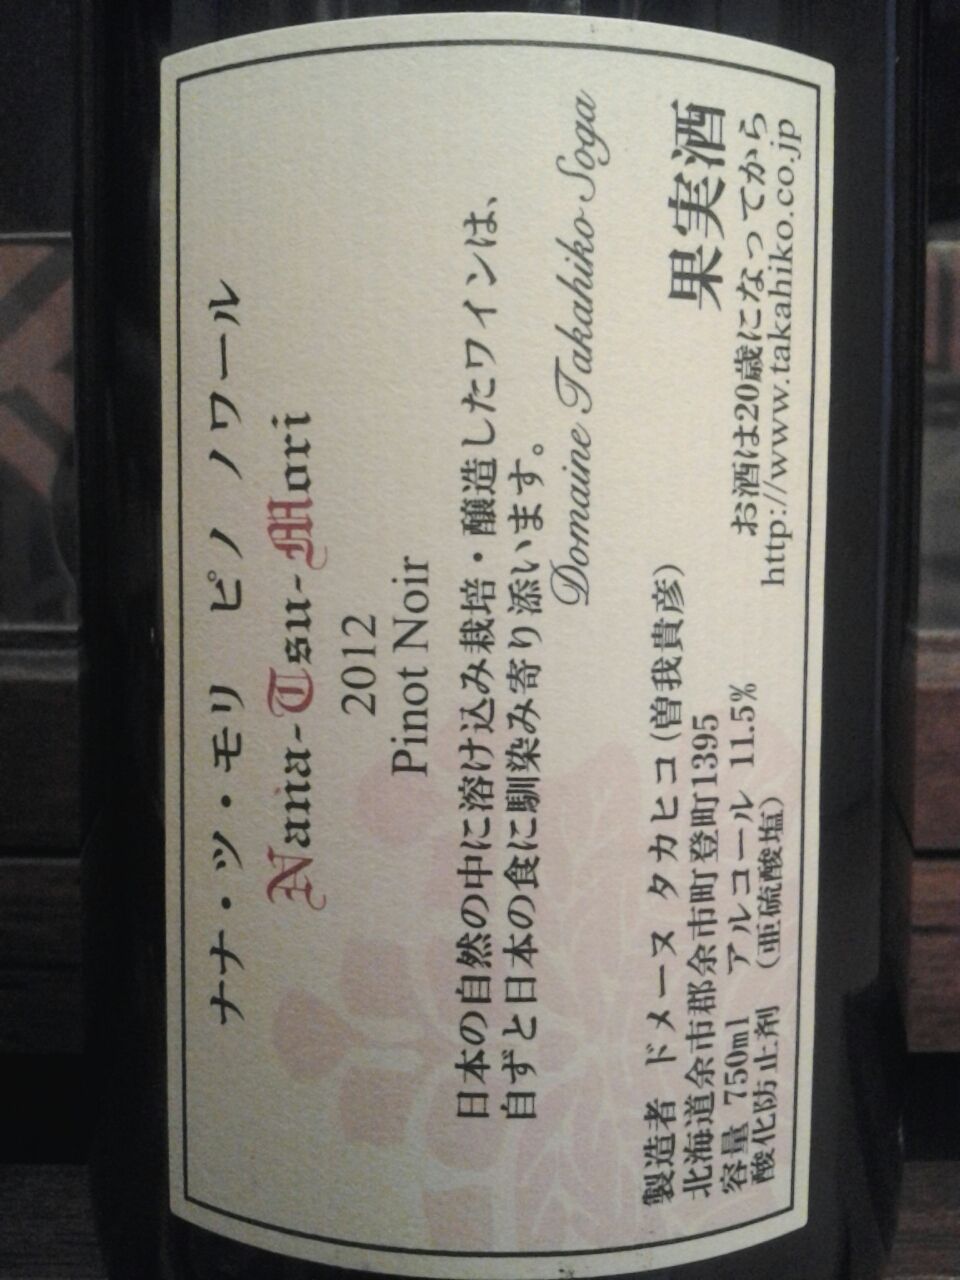 ナナ・ツ・モリ ピノ ノワール
Nana-Tsu-Mori
2012
Pinot Noir
日本の自然の中に溶け込み栽培・醸造したワインは、
自ずと日本の食に馴染み寄り添います。
Domaine Takahiko Soga
製造者 ドメーヌ タカヒコ(曽我貴彦)
北海道余市郡余市町登町1395
容量 750ml アルコール 11.5%
酸化防止剤 (亜硫酸塩)
果実酒
お酒は20歳になってから
http://www.takahiko.co.jp